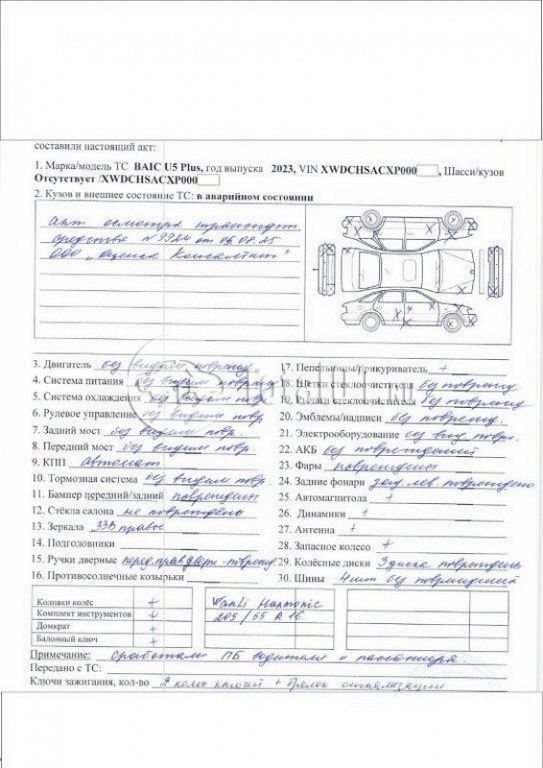 составили настоящий акт:
1. Марка/модель ТС BAIC U5 Plus, год выпуска 2023, VIN XWDCHSACXP000, Шасси/кузов
Отсутствует /XWDCHSACXP000
2. Кузов и внешнее состояние ТС: в аварийном состоянии
Акт осмотра транспорт
средства № 9924 от 06.08.25
ООО „Оценка Консалтинг"
3. Двигатель без видим поврежд
4. Система питания без видим поврежд
5. Система охлаждения без видим повр
6. Рулевое управление без видим повр
7. Задний мост без видим повр.
8. Передний мост без видим повр.
9. КПП Автомат
10. Тормозная система без видим повр.
11. Бампер передний/задний повреждены
12. Стёкла салона не повреждены
13. Зеркала ЗЗВ правое
14. Подголовники
15. Ручки дверные перед прав двери - поврежд.
16. Противосолнечные козырьки
17. Пепельницы/прикуриватель +
18. Щетки стеклоочистителя без поврежд
19. стеклоочистителя без поврежд
20. Эмблемы/надписи без поврежд.
21. Электрооборудование без вид повр.
22. АКБ без повреждений
23. Фары повреждены
24. Задние фонари зад лев повреждено
25. Автомагнитола +
26. Динамики +
27. Антенна +
28. Запасное колесо +
29. Колёсные диски 3 диска повреждены
30. Шины 4 шт без повреждений
Колпаки колёс +
Комплект инструментов +
Домкрат +
Балонный ключ +
205/55 R 16
Примечание: Сработали ПБ водителя и пассажира.
Передано с ТС:
Ключи зажигания, кол-во 2 ключей + брелок сигнализации